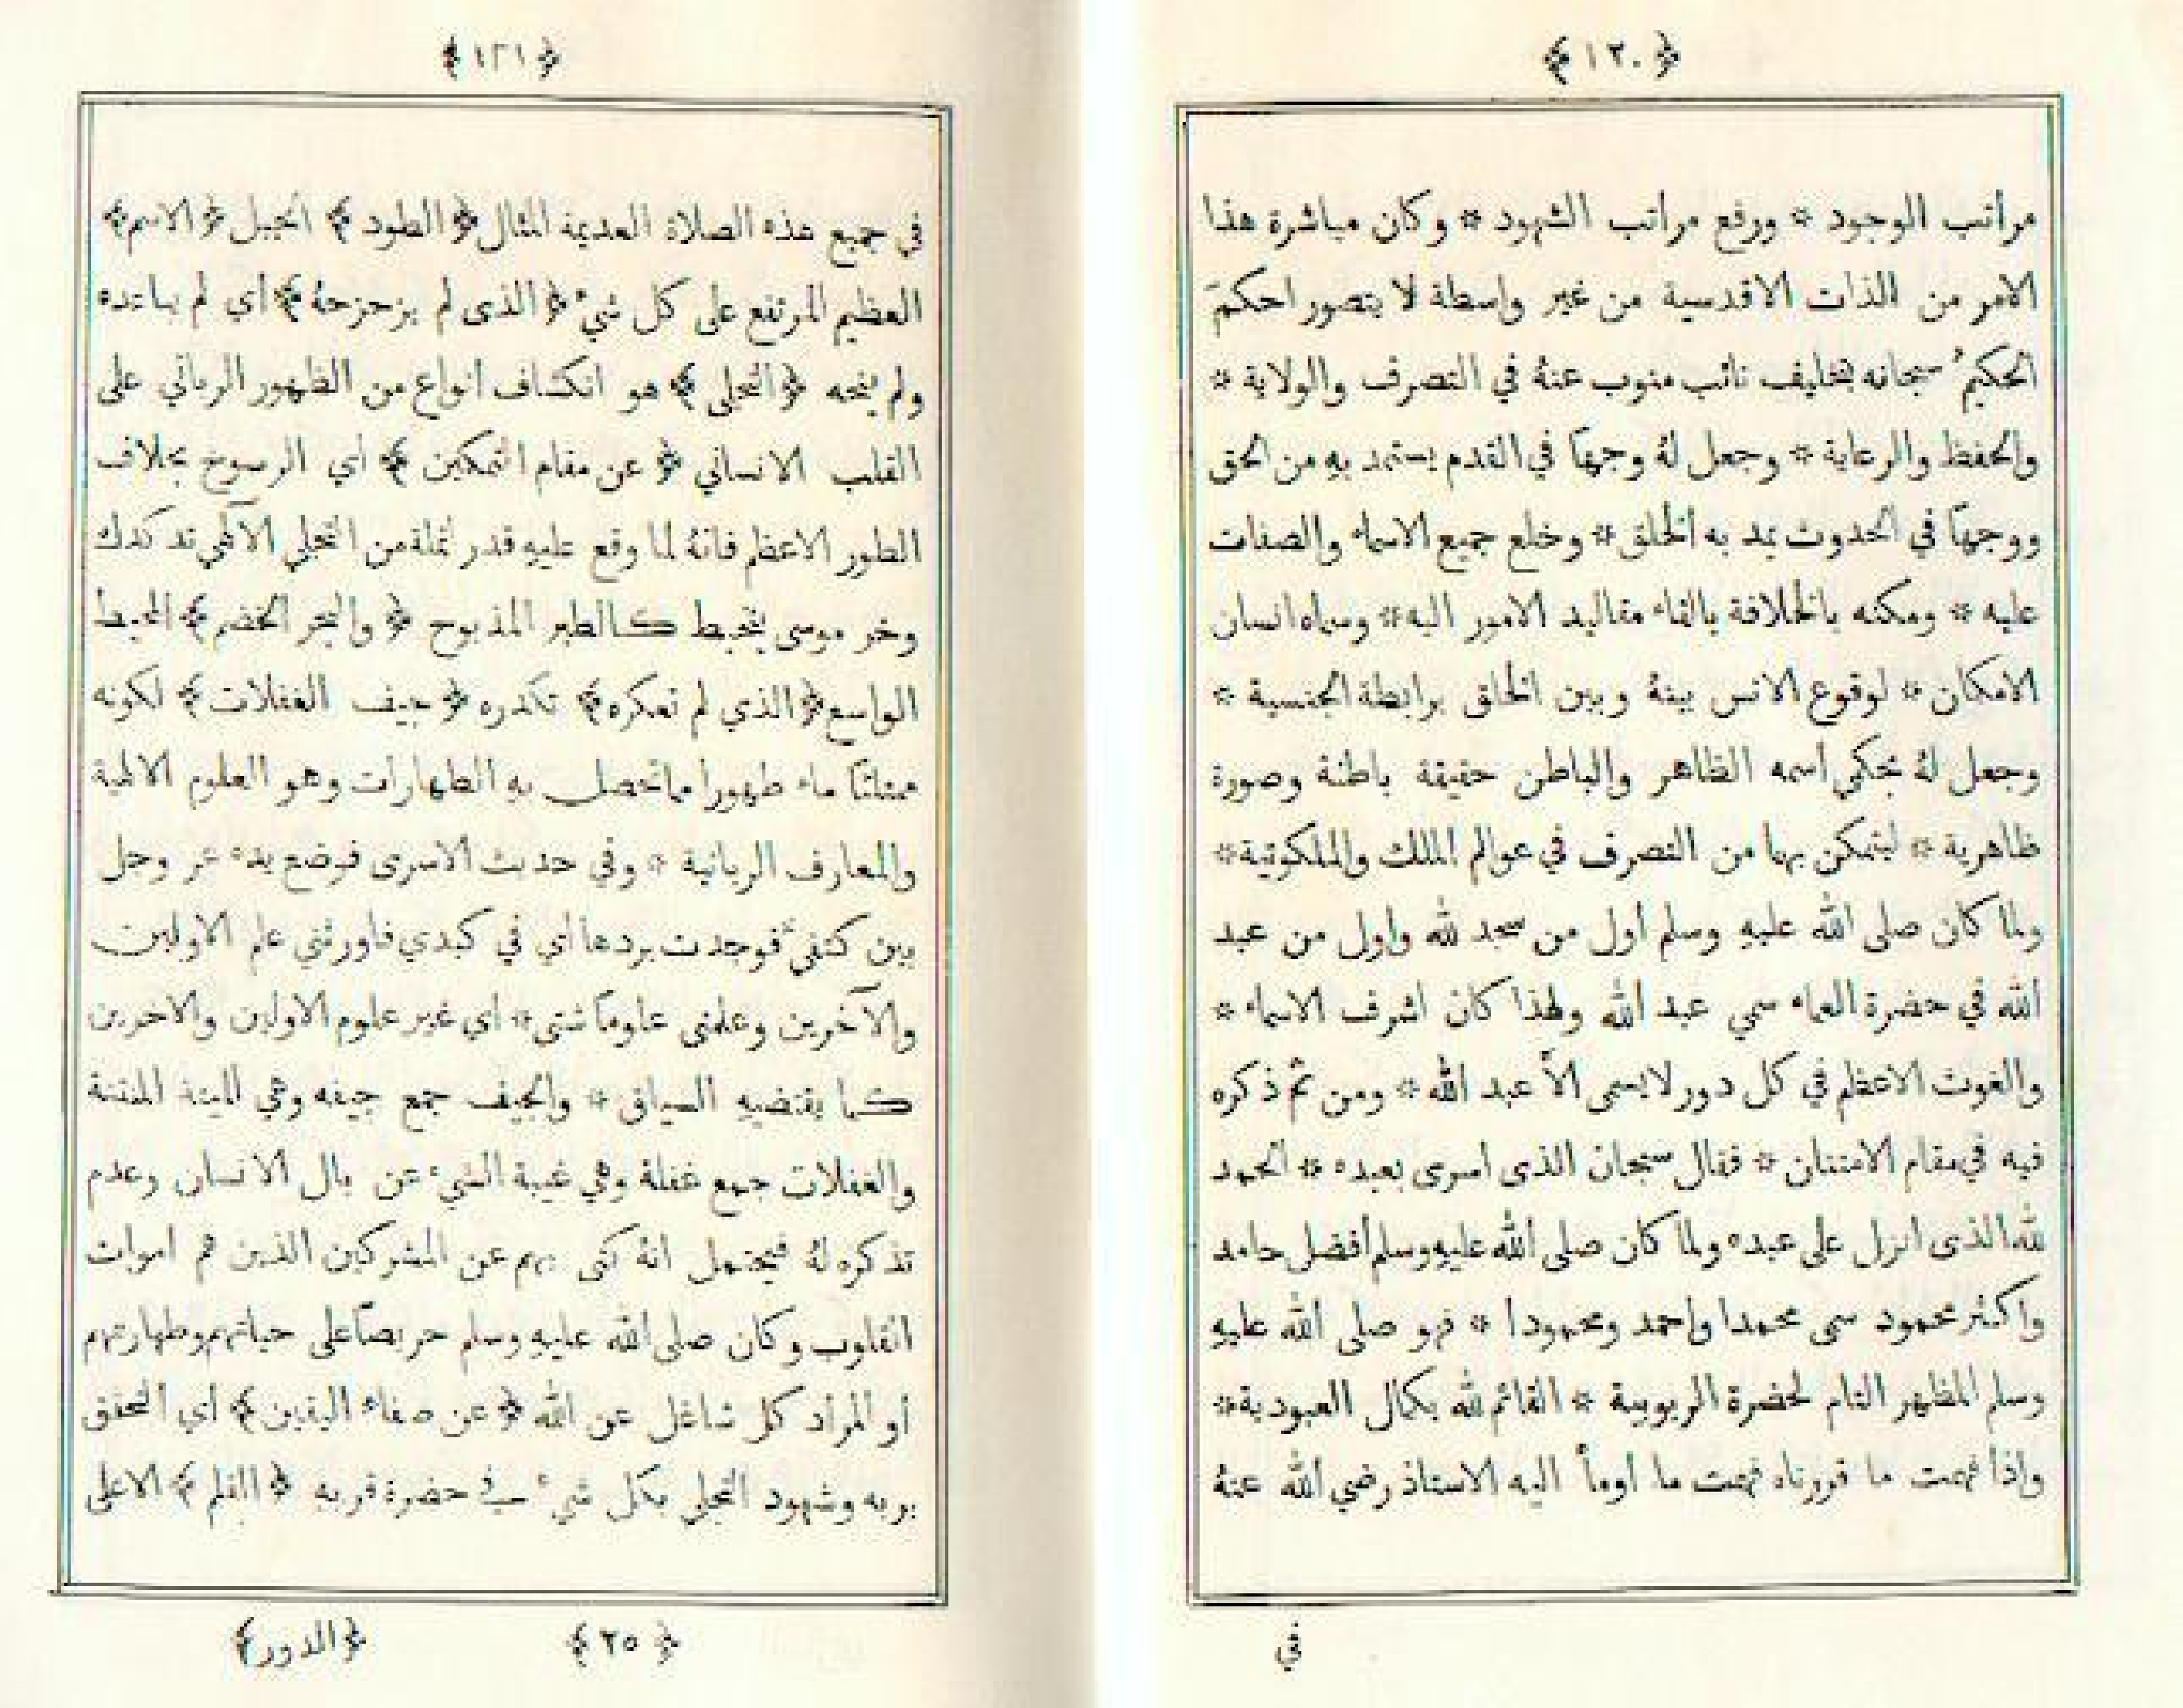 ﴿١٢٠﴾
مراتب الوجود * ورفع مراتب الشهود * وكان مباشرة هذا
الامر من الذات الاقدسية من غير واسطة لا يتصور احكمَ
الحكيمُ سبحانه بتخليف نائب منوب عنهُ في التصرف والولاية *
والحفظ والرعاية * وجعل لهُ وجهاً في القدم يستمد بهِ من الحق
ووجهاً في الحدوث يمد به الخلق * وخلع جميع الاسماء والصفات
عليه * ومكنه بالخلافة بالقاء مقاليد الامور اليه * وسماه انسان
الامكان * لوقوع الانس بينهُ وبين الخلق برابطة الجنسية *
وجعل لهُ بحكم اسمه الظاهر والباطن حقيقة باطنة وصورة
ظاهرية * ليتمكن بهما من التصرف في عوالم الملك والملكوتية *
ولما كان صلى الله عليهِ وسلم أول من سجد لله واول من عبد
الله في حضرة العماء سمي عبد الله ولهذا كان اشرف الاسماء *
والغوث الاعظم في كل دور لا يسمى الاَّ عبد الله * ومن ثم ذكره
فيه في مقام الامتنان * فقال سبحان الذى اسرى بعبده * الحمد
لله الذى انزل على عبده ولما كان صلى الله عليهِ وسلم أفضل حامد
واكثر محمود سمى محمدا واحمد ومحمودا * فهو صلى الله عليهِ
وسلم المظهر التام لحضرة الربوبية * القائم لله بكمال العبودية *
واذا فهمت ما قررناه فهمت ما اومأ اليه الاستاذ رضي الله عنهُ
في
﴿١٢١﴾
في جميع هذه الصلاة العديمة المثال ﴿الطود﴾ الجبل ﴿الاشم﴾
العظيم المرتفع على كل شيء ﴿الذى لم يزحزحهُ﴾ أي لم يباعده
ولم ينحه ﴿التجلى﴾ هو انكشاف انواع من الظهور الرباني على
القلب الانساني ﴿عن مقام التمكين﴾ أي الرسوخ بخلاف
الطور الاعظم فانهُ لما وقع عليهِ قدر انملة من التجلي الآلهي تدكدك
وخر موسى يتخبط كالطير المذبوح ﴿والبحر الخضم﴾ المحيط
الواسع ﴿الذي لم تعكره﴾ تكدره ﴿جيف الغفلات﴾ لكونه
ممتلئاً ماء طهورا مما تحصل بهِ الطهارات وهو العلوم الالهية
والمعارف الربانية * وفي حديث الاسرى فوضع يده عز وجل
بين كتفى فوجدت بردها اي في كبدي فاورثني علم الاولين
والآخرين وعلمنى علوماً شتى * اي غير علوم الاولين والاخرين
كما يقتضيهِ السياق * والجيف جمع جيفه وهي الميتة المنتنة
والغفلات جمع غفلة وهي غيبة الشيء عن بال الانسان وعدم
تذكره لهُ فيحتمل انهُ كنى بهم عن المشركين الذين هم اموات
القلوب وكان صلى الله عليهِ وسلم حريصاً على حياتهم وطهارتهم
أو المراد كل شاغل عن الله ﴿عن صفاء اليقين﴾ أي التحقق
بربه وشهود التجلي بكل شيء في حضرة قربه ﴿القلم﴾ الاعلى
﴿٢٥﴾
﴿الدور﴾